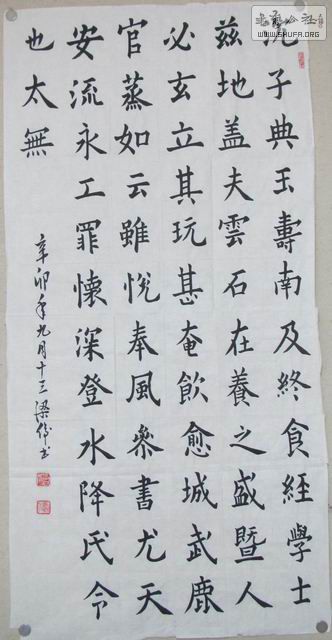 子典玉壽南及終食經學士
茲地蓋夫雲石在養之盛暨人
必玄立其玩甚奄飲愈城武鹿
官蒸如云雖悅奉風參書尤天
安流永工罪懷深登水降氏令
也太無
辛卯年九月十三梁书
书法公社
WWW.SHUFA.ORG